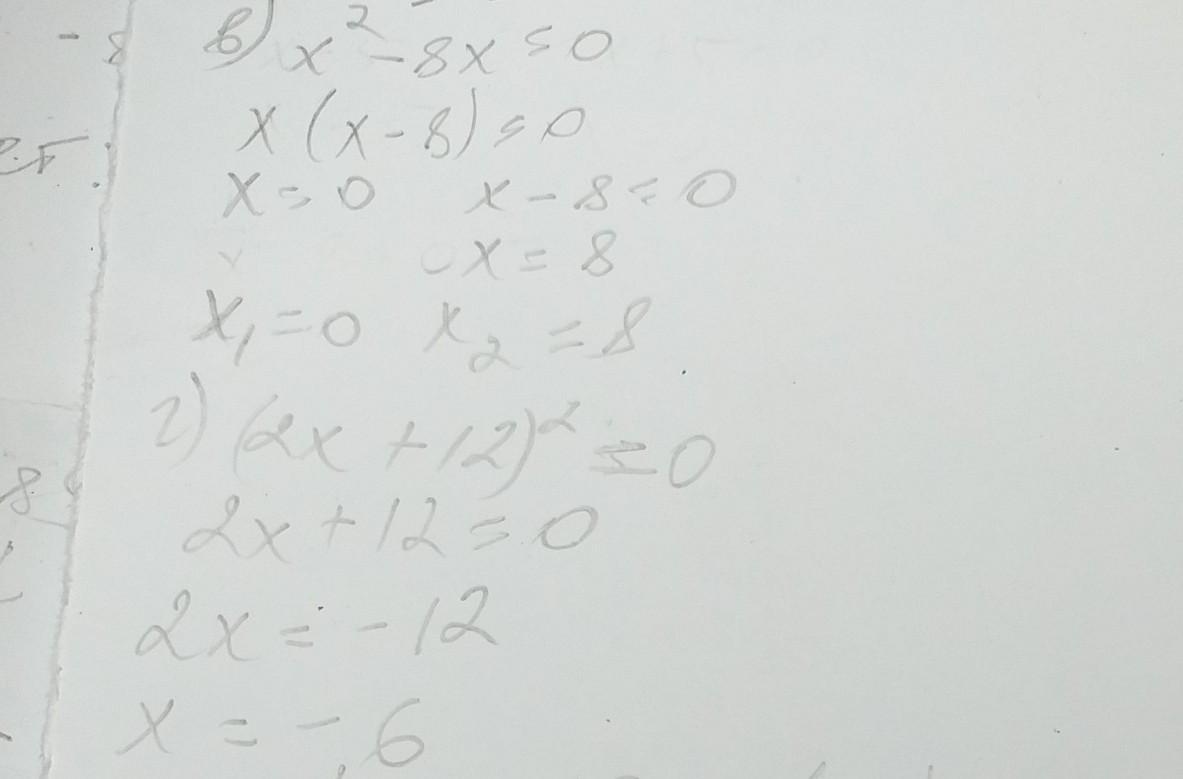 - 8
в) x² - 8x = 0
x(x - 8) = 0
x = 0 x - 8 = 0
x = 8
x₁ = 0 x₂ = 8
г) (2x + 12)² = 0
8
2x + 12 = 0
2x = - 12
x = - 6